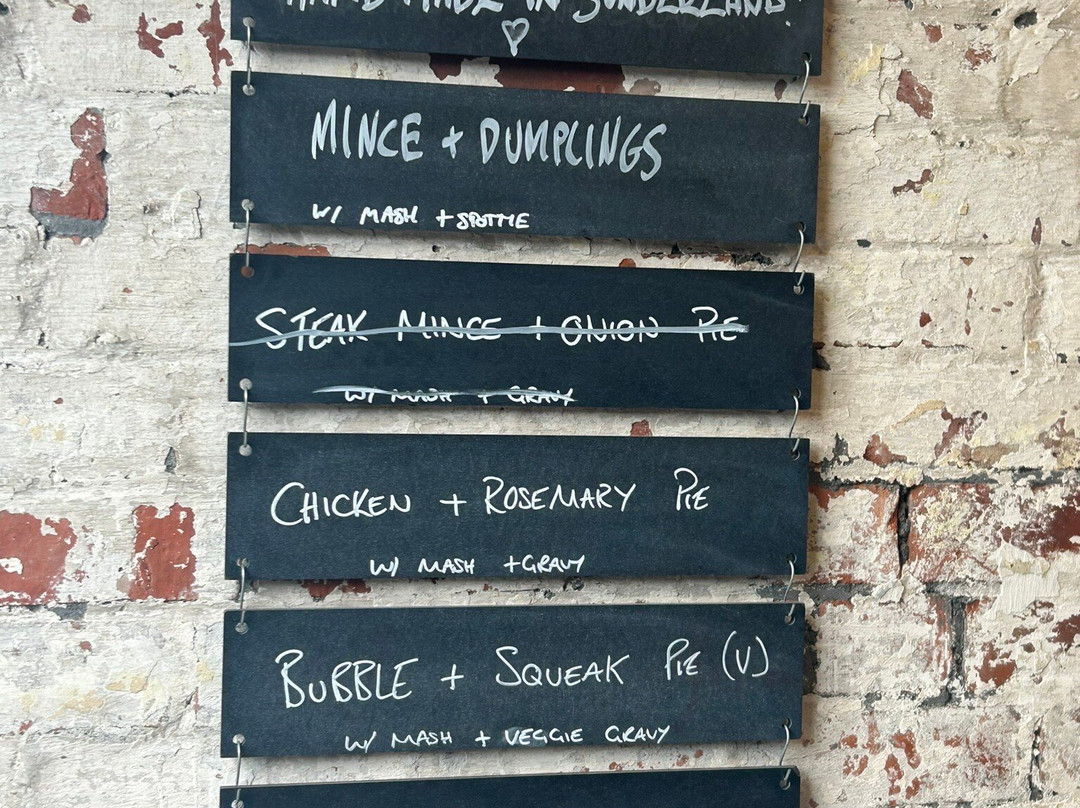 HAND MADE IN SUNDERLAND.
MINCE + DUMPLINGS
W/ MASH +
STEAK MINCE + ONION PIE
W/ MASH + GRAVY
CHICKEN + ROSEMARY PIE
W/ MASH +GRAVY
BUBBLE + SQUEAK PIE (V)
W/ MASH + VEGGIE GRAVY